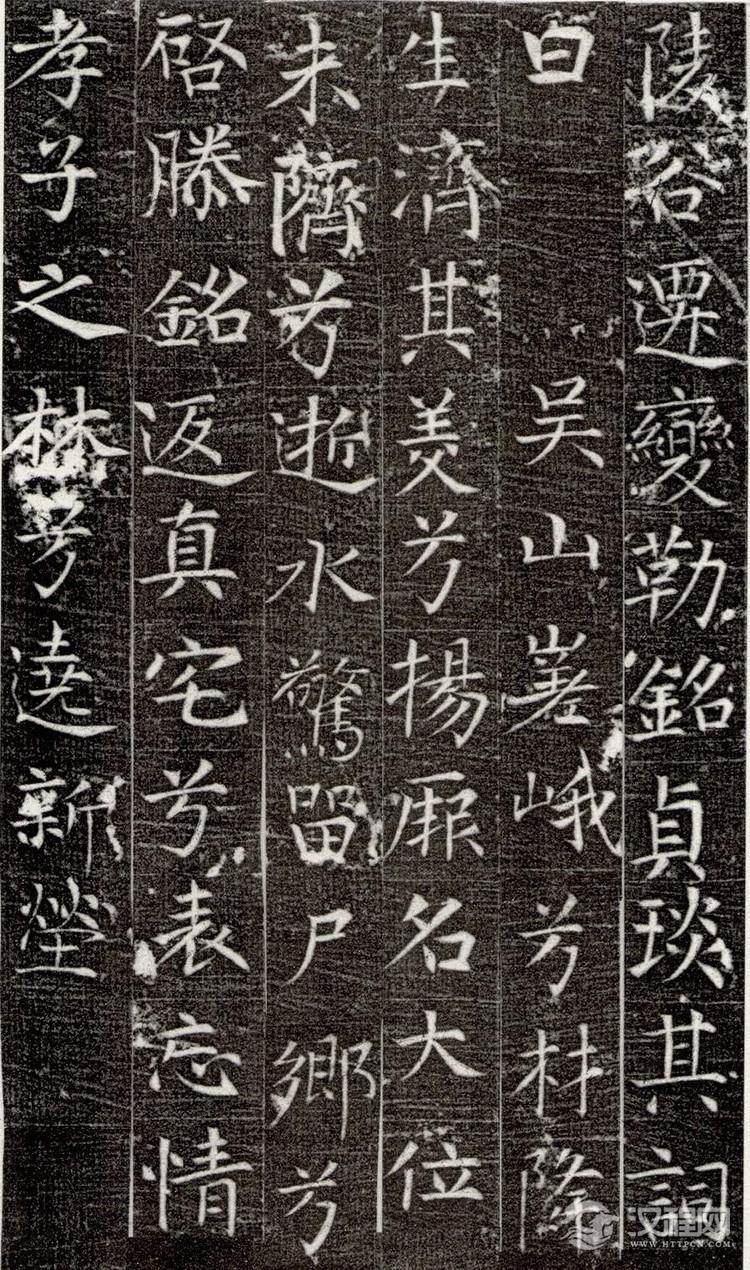 陵谷遷變勒銘貞琰其詞
曰 吴山嵳峨兮材隆
生濟其美兮揚厥名大位
未隮兮逝水驚留尸鄉兮
啓滕銘返真宅兮表忘情
孝子之兮遶新塋
汉程网
WWW.HTTPCN.COM